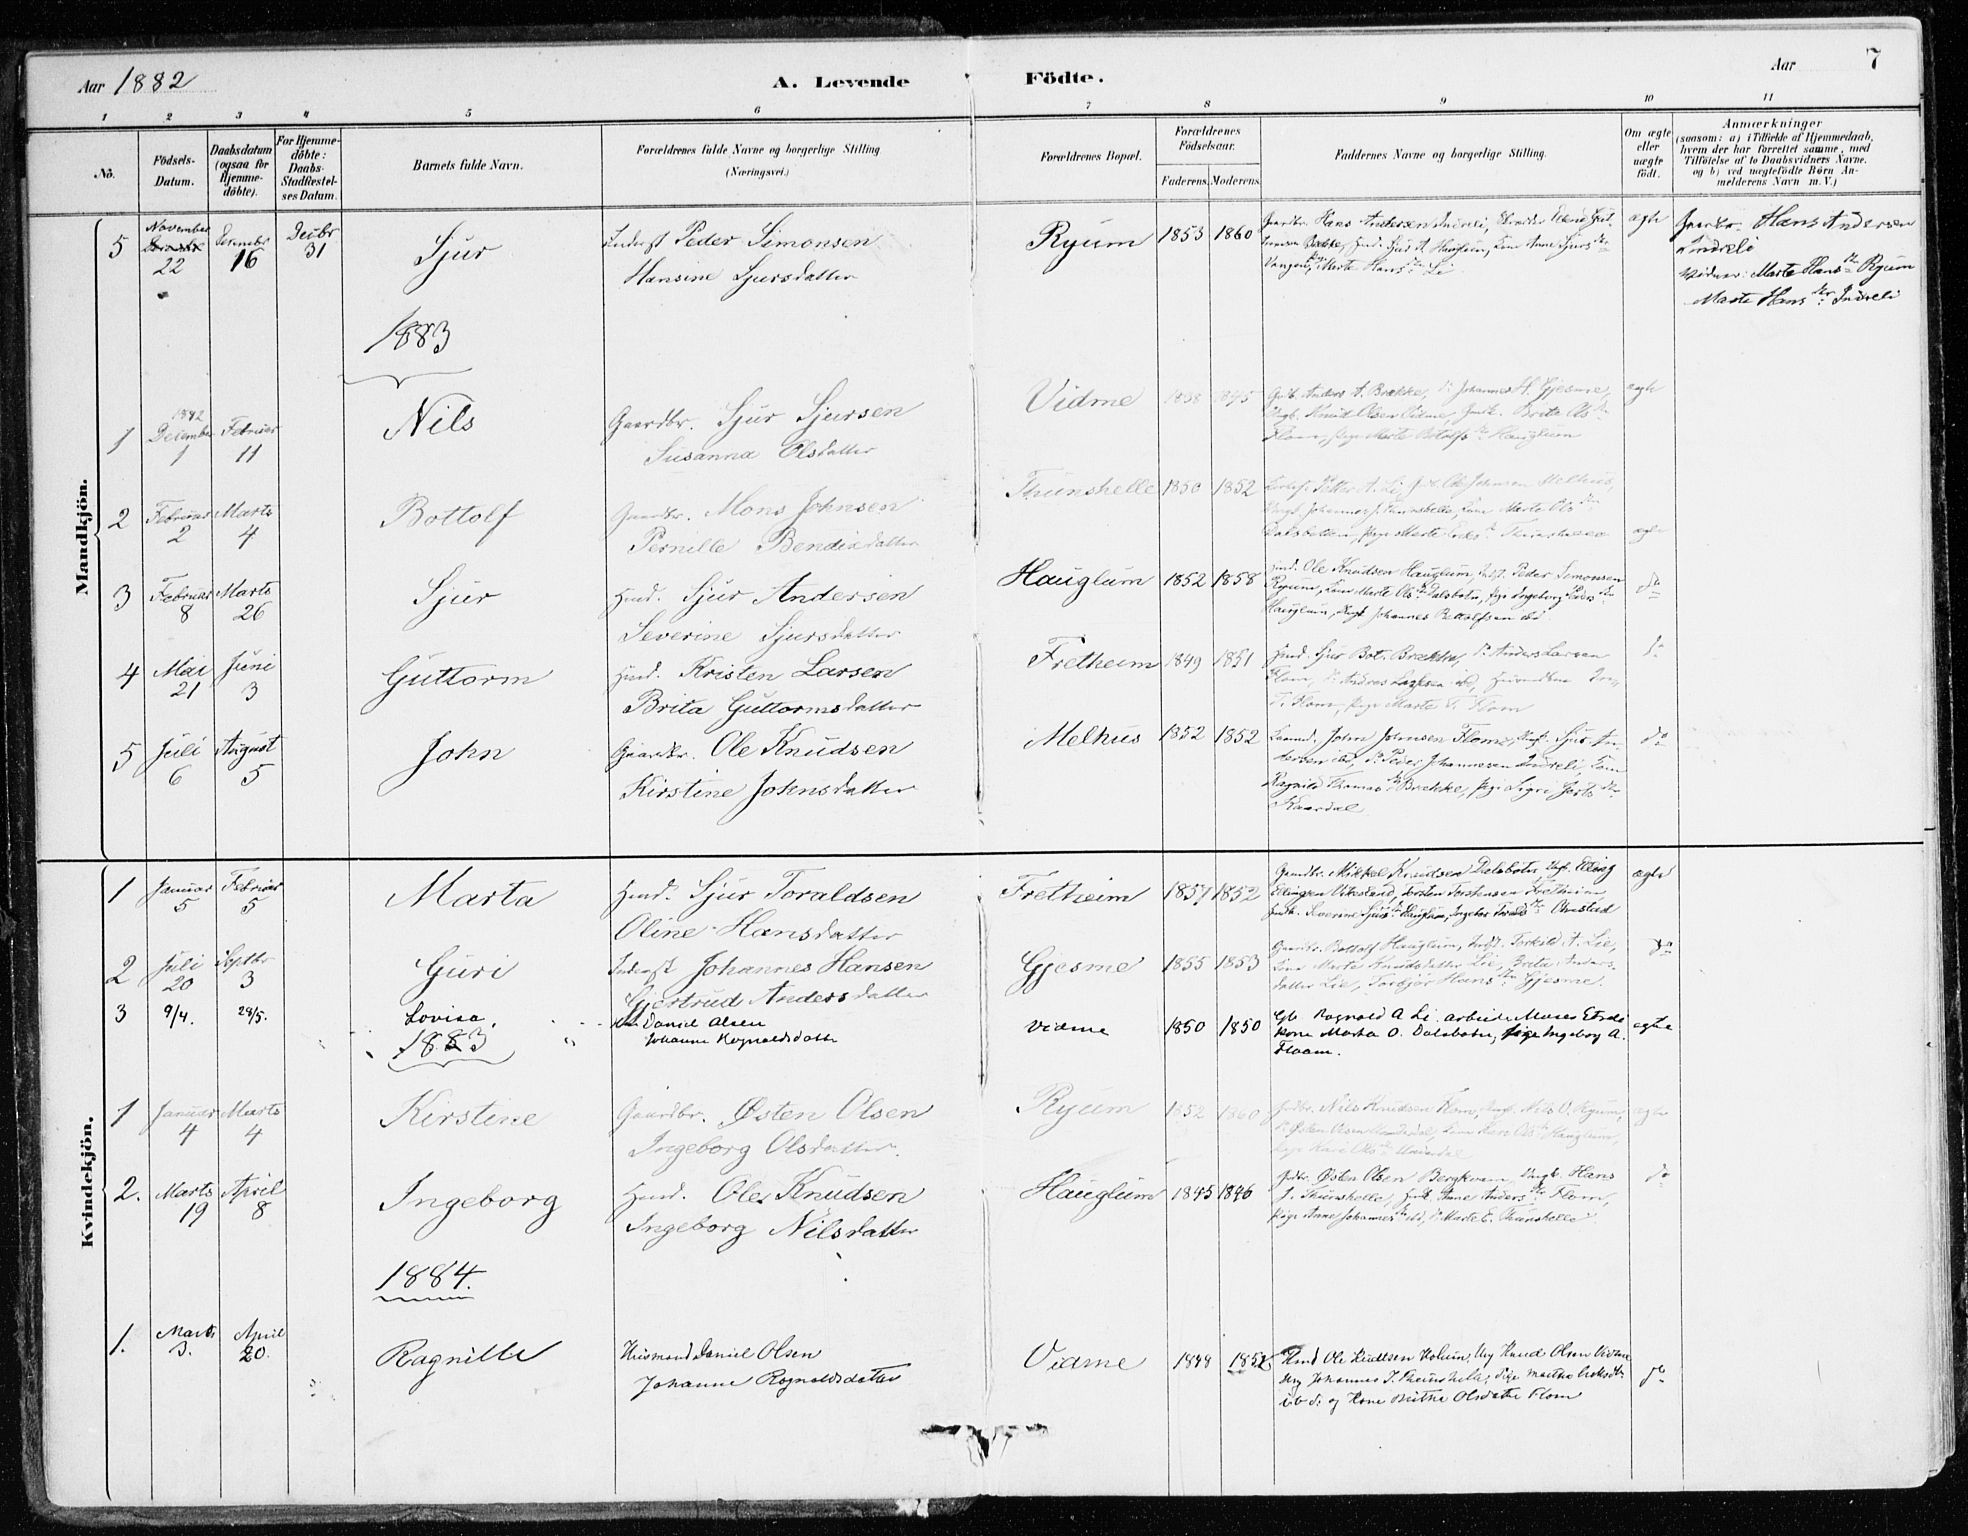 Aar 1882
A. Levende Födte.
Aar 7
1 2 3 4 5 6 7 8 9 10 11
No.
Födsels-Datum.
Daabsdatum (ogsaa for Hjemme-döbte).
For Hjemme-döbte: Daabs-Stadfæstel-ses Datum.
Barnets fulde Navn.
Forældrenes fulde Navne og borgerlige Stilling (Næringsvei.)
Forældrenes Bopæl.
Forældrenes Födselsaar.
Faderens. Moderens.
Faddernes Navne og borgerlige Stilling.
Om ægte eller uægte födt.
Anmærkninger
(saasom: a) i Tilfælde af Hjemmedaab,
hvem der har forrettet samme, med
Tilföielse af to Daabsvidners Navne.
og b) ved uægtefödte Børn An-
melderens Navn m. V.)
Mandkjön.
5 November 22 Desember 16 Decbr 31 Sjur
Inderst Peder Simonsen
Hansine Sjursdatter
Ryum 1853 1860
Gaardbr. Hans Andersen Indreli,
Vangen, Marte Hans dtr Li
ægte
Gaardbr. Hans Andersen
Indreli
Vidner: Marte Hans dtr Ryum
Marte Hans dtr Indreli
1883
1 1882 December 1 Februar 11 Nils
Gaardbr. Sjur Sjursen
Susanna Olsdatter
Vidme 1858
Gdb. Anders A. Brække, do Johannes H. Gjesme,
Ungk. Knud Olsen Vidme, Brita Ols dtr
Flom, pige Marte Botolfs dtr Hauglum
ægte
2 Februar 2 Marts 4 Bottolf
Gaardbr. Mons Johnsen
Pernille Bendixdatter
Thunshelle 1850 1852
Petter A. Li, Ole Johnsen Melhus,
Ungk. Johannes J. Thunshelle, Kone Marte Ols dtr
Dalsbotten, pige Marte
ægte
3 Februar 8 Marts 26 Sjur
Husd. Sjur Andersen
Severine Sjursdatter
Hauglum 1852 1858
Husd. Ole Knudsen Hauglum, Inds. Peder Simonsen
Ryum, Kone Marte Ols dtr Dalsbotn, pige Ingeborg Peders dtr
Hauglum, Ungk. Johannes Bottolfsen ibd
do
4 Mai 21 Juni 3 Guttorm
Husd. Kristen Larsen
Brita Guttormsdatter
Fretheim 1849 1851
Husd. Sjur Bot. Brække, do Anders Larsen
Flom, do Andres Larsen ibd,
T. Flom, pige Marte Flom
do
5 Juli 6 August 5 John
Gaardbr. Ole Knudsen
Kirstine Johnsdatter
Melhus 1852 1852
John Johnsen Flom, Ungk. Sjur An-
dersen ibd, do Peder Johannesen Indreli, Kone
Ragnild Thomas dtr Brække, pige Sigri Gjerts dtr
Kaardal
do
Kvindekjön.
1 Januar 5 Februar 5 Marta
Husd. Sjur Toraldsen
Oline Hansdatter
Fretheim 1857 1852
Gaardbr. Mikkel Knudsen Dalsbotn, Ungk. Elling
Ellingsen Vikesland, Torsten Torstensen Fretheim
Severine Sjurs dtr Hauglum, Ingebor Toralds dtr Onstad
ægte
2 Juli 20 Septbr 3 Guri
Inderst Johannes Hansen
Gjertrud Andersdatter
Gjesme 1855 1853
Gaardbr. Bottolf Hauglum, Torkild A. Lie,
Kone Marta Knudsdatter Lie, Brita Anders-
datter Lie, Torbjør Hans dtr Gjesme.
do
3 9/4. 28/5. Lovisa.
Daniel Olsen
Johanne Rognaldsdatter
Vidme 1850 1850
Gb. Rognald A Li. arbeider Moses
kone Marta O. Dalsbotn, pige Ingeborg A.
Flaam.
ægte
1883
1 Januar 4 Marts 4 Kirstine
Gaardbr. Østen Olsen
Ingeborg Olsdatter.
Ryum 1852 1860
Gdbr. Nils Knudsen Flom, Ungk. Nils O. Ryum,
do Østen Olsen Underdal, Kone Kari Ols dtr Hauglum,
pige Kari Ols dtr Underdal
ægte
2. Marts 19 April 8 Ingeborg
Husd. Ole Knudsen
Ingeborg Nilsdatter
Hauglum 1845 1846
Gdbr. Østen Olsen Bergkvam, Ungk. Hans
J. Thunshelle, Anne Anders dtr Flom,
pige Anne Johannes dtr ibd, do Marte E. Thunshelle
do
1884.
1. Marts 3. April 20. Ragnille
Husmand Daniel Olsen
Johanne Rognaldsdatter
Vidme 1849 1852
Husd Ole Knudsen Holum, Ung Knud Olsen Vidme
Ung Johannes J. Thunshelle, Pige Martha
ibd: og Kone Brithe Olsdatter Flom
do